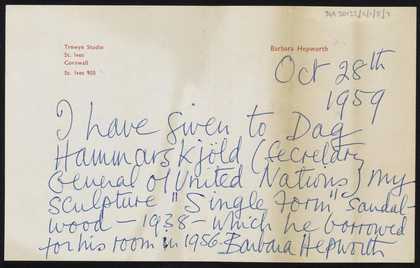 Trewyn Studio
St. Ives
Cornwall
St. Ives 905
Barbara Hepworth
Oct 28th
1959
I have given to Dag
Hammarskjöld (Secretary
General of United Nations) my
sculpture "Single Form" Sandal-
wood - 1938 - which he borrowed
for his room in 1956. Barbara Hepworth